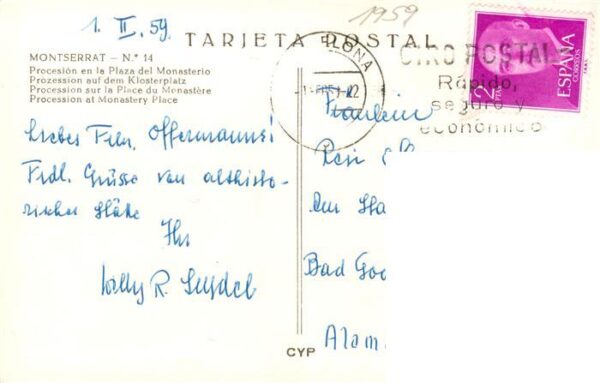 1. II. 59.
1959
TARJETA POSTAL
MONTSERRAT – N.º 14
Procesión en la Plaza del Monasterio
Prozession auf dem Klosterplatz
Procession sur la Place du Monastère
Procession at Monastery Place
Liebes Frln. Offermanns!
Frdl. Grüsse von althisto-
rischer Stätte
Ihr
Willy R. Seydel
CYP
LONA
GIRO POSTAL
Rápido,
seguro y
económico
2
PTAS
ESPAÑA
CORREOS
Fräulein
Resi
Bad Go
Alem